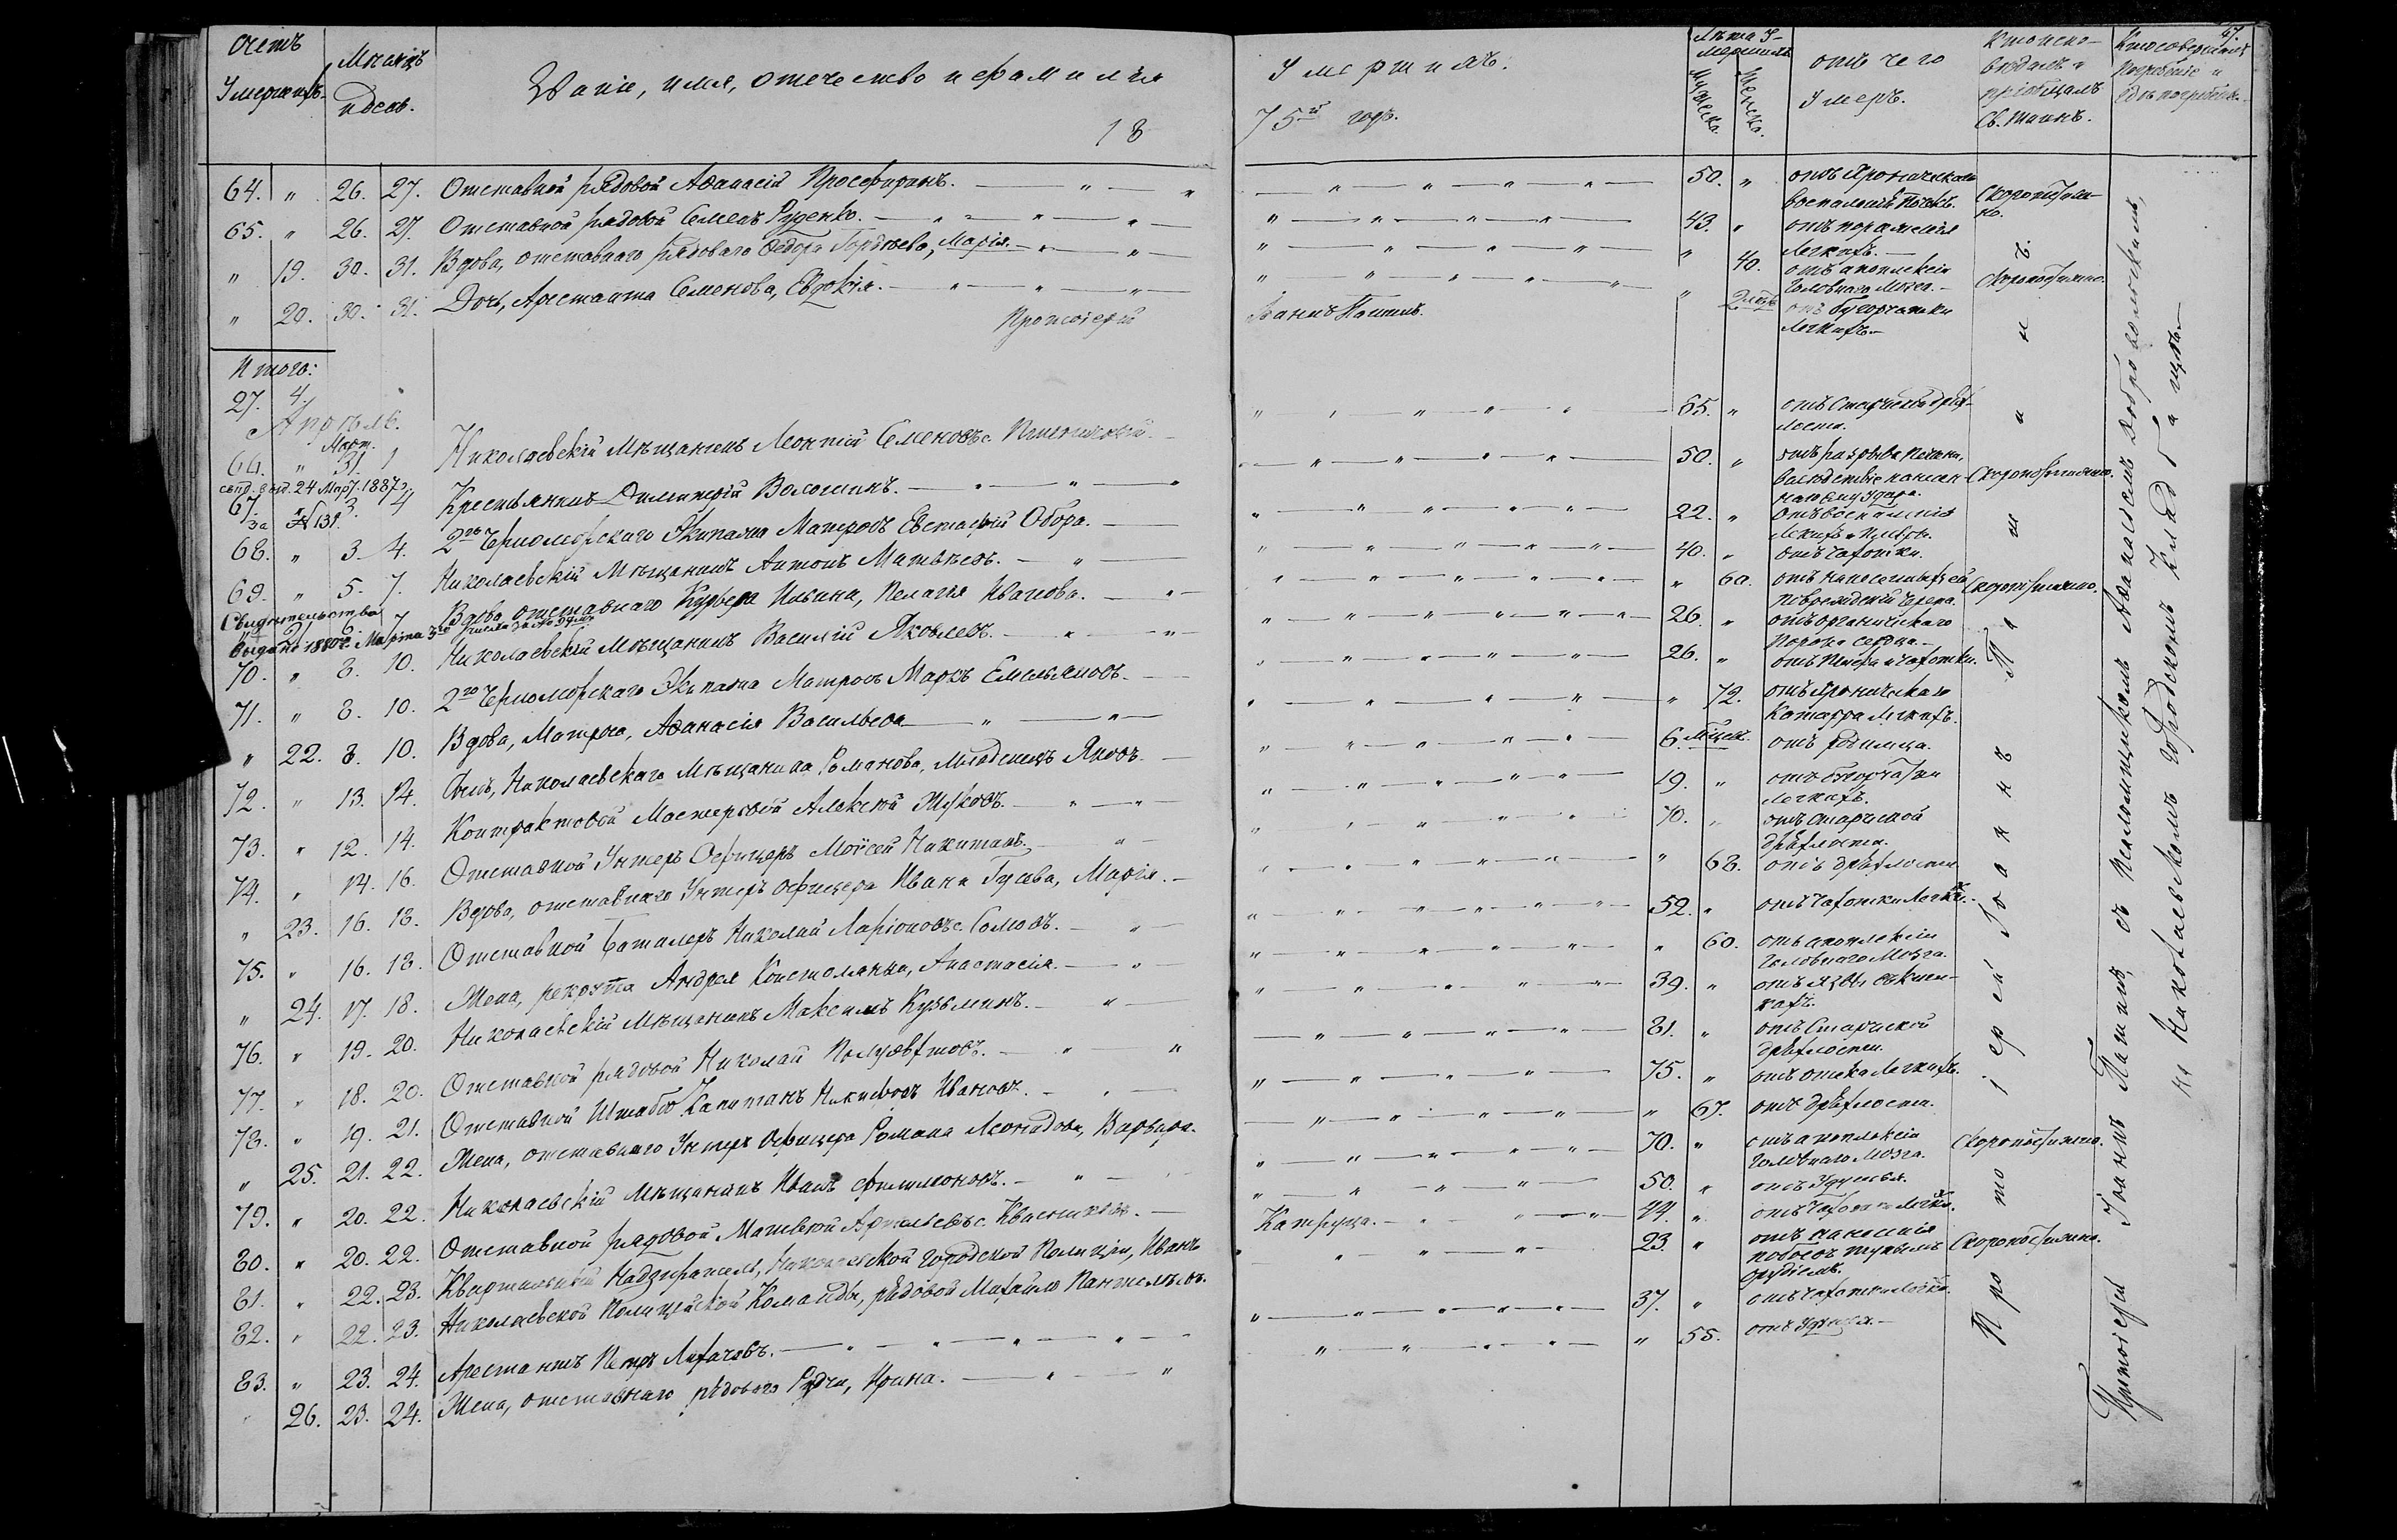 Счетъ Умершихъ. Мѣсяцъ и день. Званіе, имя, отечество и фамилія Умершихъ. Лѣта Умершихъ Мужеска. Женска. отъ чего Умеръ. Кто исповѣдалъ и пріобщалъ Св. Таинъ. Кто совершалъ погребеніе и гдѣ погребены.
67.
18 75й годъ.
64. " 26. 27. Отставной рядовой Аѳанасій Просфиринъ. 50. " отъ Хроническаго воспаленія почекъ.
65. " 26. 27. Отставной рядовой Семенъ Руденко. 43. " отъ пораженія Легкихъ. Скоропостижно.
" 19. 30. 31. Вдова, отставнаго рядоваго Ѳедора Гордѣева, Марія. " 40. отъ апоплексіи Головнаго Мозга. Скоропостижно.
" 20. 30. 31. Дочь, Арестанта Семенова, Евдокія. " 2 мѣс. отъ бугорчатки Легкихъ.
Протоіерей Іоаннъ Паттинъ.
Итого:
27. 4.
Апрѣль.
Март.
66. " 31. 1 Николаевскій Мѣщанинъ Леонтій Семеновъ с. 65. " отъ Старческой дряхлости.
свид. выд. 24 Март. 1887 г.
за № 131.
67. " 3. 4 Крестьянинъ Димитрій Волошинъ. 50. " отъ разрыва печени, вслѣдствіе нанесеннаго ему удара. Скоропостижно.
68. " 3. 4. 2го Черноморскаго Экипажа Матросъ Евстафій Обора. 22. " отъ воспаленія легкихъ и плевры.
69. " 5. 7. Николаевскій Мѣщанинъ Антонъ Матвѣевъ. 40. " отъ чахотки.
" 21. 6. 7 Вдова отставнаго Курьера Ильина, Пелагія Иванова. " 60. отъ нанесенныхъ ей поврежденій черепа. Скоропостижно.
Свидѣтельство выдано 1880 г. Марта 5го числа за №
70. " 8. 10. Николаевскій Мѣщанинъ Василій Яковлевъ. 26. " отъ органическаго порока сердца.
71. " 8. 10. 2го Черноморскаго Экипажа Матросъ Маркъ Емельяновъ. 26. " отъ чахотки.
" 22. 8. 10. Вдова, Матроса, Аѳанасія Васильева " 72. отъ Хроническаго Катарра Легкихъ.
72. " 13. 14. Сынъ, Николаевскаго Мѣщанина Романова, младенецъ Яковъ. 6. мѣсяц. отъ родимца.
73. " 12. 14. Контрактовой Мастеровой Алексѣй Жуковъ. 19. " отъ бугорчатки легкихъ.
74. " 14. 16. Отставной Унтеръ Офицеръ Моисей Никитинъ. 70. " отъ старческой дряхлости.
" 23. 16. 18. Вдова, отставнаго Унтеръ офицера Ивана Гусева, Марія. " 68. отъ дряхлости.
75. " 16. 18. Отставной Баталеръ Николай Ларіоновъ с. Сомовъ. 52. " отъ чахотки Легкихъ.
" 24. 17. 18. Жена, рекрута Андрея Костомахи, Анастасія. " 60. отъ апоплексіи Головнаго Мозга.
76. " 19. 20. Николаевскій Мѣщанинъ Максимъ Кузьминъ. 39. " отъ язвы въ кишкахъ.
77. " 18. 20. Отставной рядовой Николай Полуэктовъ. 81. " отъ Старческой дряхлости.
78. " 19. 21. Отставной Штабсъ Капитанъ Никифоръ Ивановъ. 75. " отъ отека Легкихъ.
" 25. 21. 22. Жена, отставнаго Унтеръ Офицера Романа Леонидова, Варвара. " 67. отъ дряхлости.
79. " 20. 22. Николаевскій Мѣщанинъ Иванъ Филимоновъ. 70. " отъ апоплексіи Головнаго Мозга. Скоропостижно.
80. " 20. 22. Отставной рядовой Матвѣй Арсеньевъ с. Квасниковъ. 50. " отъ Удушья.
81. " 22. 23. Квартальный Надзиратель, Николаевской Городской Полиціи, Иванъ Катруца. 44. " отъ чахотки Легких.
82. " 22. 23. Николаевской Полицейской Команды, рядовой Михайло Пантелѣевъ. 23. " отъ нанесенія побоевъ тупымъ орудіемъ. Скоропостижно.
83. " 23. 24. Арестантъ Петръ Лихачовъ. 37. " отъ чахотки Легких.
" 26. 23. 24. Жена, отставнаго рядоваго Рудчи, Ирина. " 55. отъ удушья.
Протоіерей Іоаннъ Паттинъ.
Протоіерей Іоаннъ Паттинъ, съ Псаломщикомъ Аѳанасіемъ Добровольскимъ,
на Николаевскомъ городскомъ Кладбищѣ.